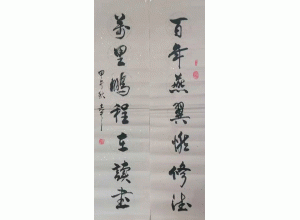 百年燕翼惟修德
萬里鵬程在讀書